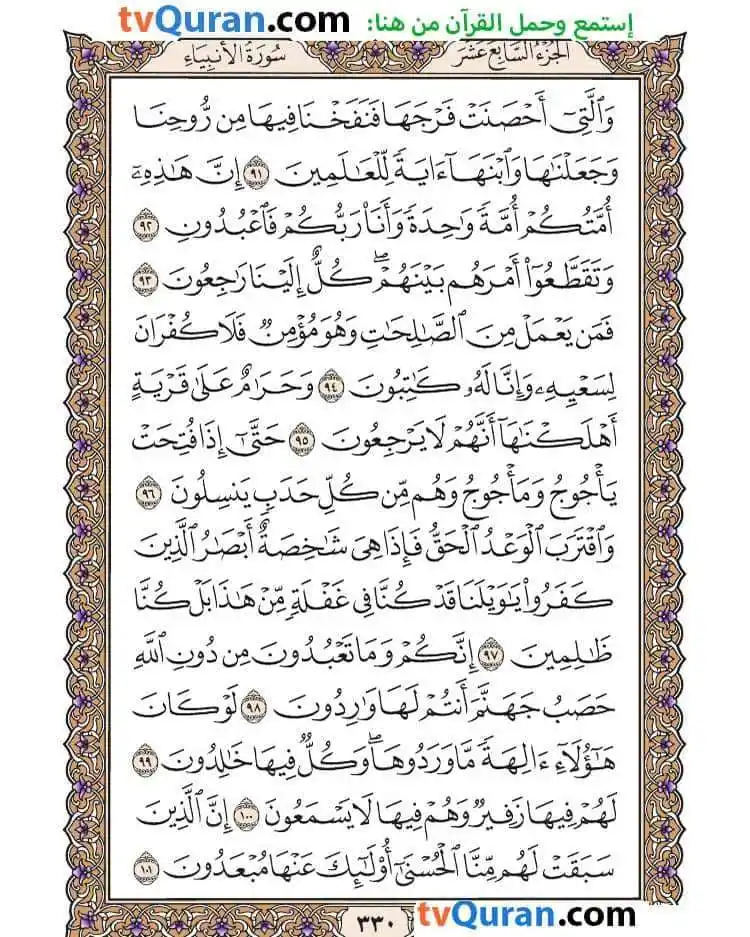 tvQuran.com إستمع وحمل القرآن من هنا:
الجزء السابع عشر
سورة الأنبياء
وَٱلَّتِيٓ أَحۡصَنَتۡ فَرۡجَهَا فَنَفَخۡنَا فِيهَا مِن رُّوحِنَا
وَجَعَلۡنَٰهَا وَٱبۡنَهَآ ءَايَةٗ لِّلۡعَٰلَمِينَ ٩١ إِنَّ هَٰذِهِۦٓ
أُمَّتُكُمۡ أُمَّةٗ وَٰحِدَةٗ وَأَنَا۠ رَبُّكُمۡ فَٱعۡبُدُونِ ٩٢
وَتَقَطَّعُوٓاْ أَمۡرَهُم بَيۡنَهُمۡۖ كُلٌّ إِلَيۡنَا رَٰجِعُونَ ٩٣
فَمَن يَعۡمَلۡ مِنَ ٱلصَّٰلِحَٰتِ وَهُوَ مُؤۡمِنٞ فَلَا كُفۡرَانَ
لِسَعۡيِهِۦ وَإِنَّا لَهُۥ كَٰتِبُونَ ٩٤ وَحَرَٰمٌ عَلَىٰ قَرۡيَةٍ
أَهۡلَكۡنَٰهَآ أَنَّهُمۡ لَا يَرۡجِعُونَ ٩٥ حَتَّىٰٓ إِذَا فُتِحَتۡ
يَأۡجُوجُ وَمَأۡجُوجُ وَهُم مِّن كُلِّ حَدَبٖ يَنسِلُونَ ٩٦
وَٱقۡتَرَبَ ٱلۡوَعۡدُ ٱلۡحَقُّ فَإِذَا هِيَ شَٰخِصَةٌ أَبۡصَٰرُ ٱلَّذِينَ
كَفَرُواْ يَٰوَيۡلَنَا قَدۡ كُنَّا فِي غَفۡلَةٖ مِّنۡ هَٰذَا بَلۡ كُنَّا
ظَٰلِمِينَ ٩٧ إِنَّكُمۡ وَمَا تَعۡبُدُونَ مِن دُونِ ٱللَّهِ
حَصَبُ جَهَنَّمَ أَنتُمۡ لَهَا وَٰرِدُونَ ٩٨ لَوۡ كَانَ
هَٰٓؤُلَآءِ ءَالِهَةٗ مَّا وَرَدُوهَاۖ وَكُلّٞ فِيهَا خَٰلِدُونَ ٩٩
لَهُمۡ فِيهَا زَفِيرٞ وَهُمۡ فِيهَا لَا يَسۡمَعُونَ ١٠٠ إِنَّ ٱلَّذِينَ
سَبَقَتۡ لَهُم مِّنَّا ٱلۡحُسۡنَىٰٓ أُوْلَٰٓئِكَ عَنۡهَا مُبۡعَدُونَ ١٠١
٣٣٠
tvQuran.com